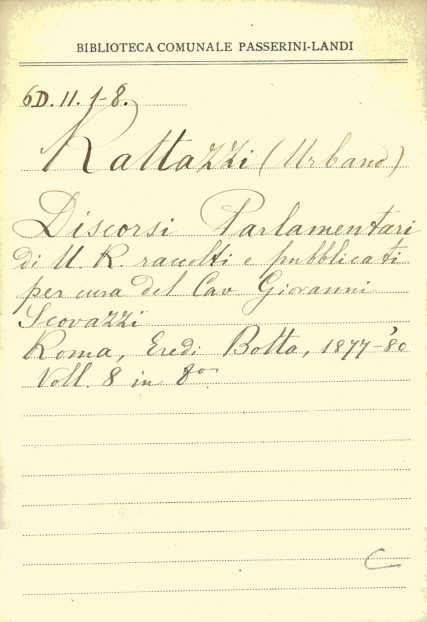 BIBLIOTECA COMUNALE PASSERINI-LANDI
6D. 11. 1-8.
Rattazzi (Urbano)
Discorsi Parlamentari
di U. R. raccolti e pubblicati
per cura del Cav Giovanni
Scovazzi
Roma, Eredi Botta, 1877-'80
Voll. 8 in 8º
C